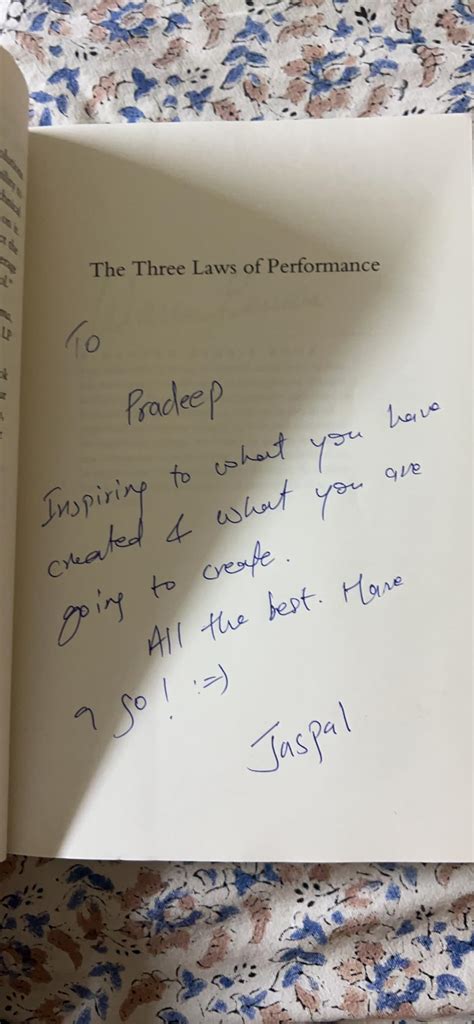 The Three Laws of Performance
To
Pradeep
Inspiring to what you have
created & what you are
going to create.
All the best. Have
a go! :=)
Jaspal